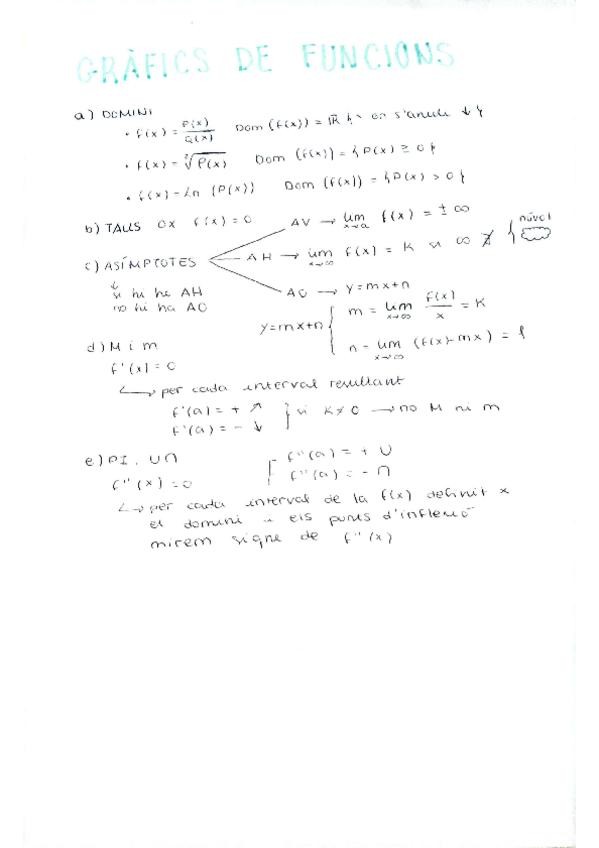 GRÀFICS DE FUNCIONS
a) DOMINI
• f(x) = P(x)/Q(x) Dom (f(x)) = ℝ \ { x on s'anula ↓ }
• f(x) = √P(x) Dom (f(x)) = { P(x) ≥ 0 }
• f(x) = Ln (P(x)) Dom (f(x)) = { P(x) > 0 }
b) TALLS OX f(x) = 0
AV → lim x→a f(x) = ± ∞
c) ASÍMPTOTES
AH → lim x→∞ f(x) = K si ∞ ∄ { núvol
↓
si hi ha AH
no hi ha AO
AO → y = mx+n
y = mx+n { m = lim x→∞ f(x)/x = K
n = lim x→∞ (f(x) - mx) = l
d) M i m
f'(x) = 0
↳ per cada interval resultant
f'(a) = + ↗
f'(a) = - ↓ } si K ≠ 0 → no M ni m
e) PI, ∪∩
f''(x) = 0
f''(a) = + ∪
f''(a) = - ∩
↳ per cada interval de la f(x) definit x
el domini i els punts d'inflexió
mirem signe de f''(x)